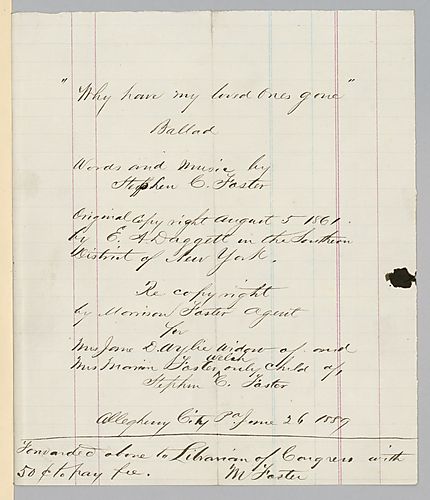 "Why have my loved Ones gone"
Ballad
Words and Music by
Stephen C. Foster
Original Copy right August 5 1861.
by E. A. Daggett in the Southern
District of New York.
Re copyright
by Morrison Foster Agent
for
Mrs Jane D. Wylie Widow of and
Welsh
Mrs Marion Foster only Child of
Stephen C. Foster
Allegheny City Pa June 26 1889
Forwarded above to Librarian of Congress with
50 ¢ to pay fee.
M Foster